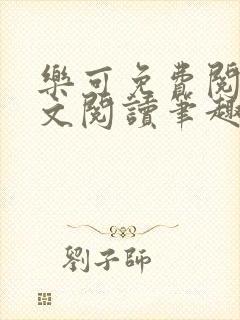 樂可免費閱
文閱讀筆趣
劉子師